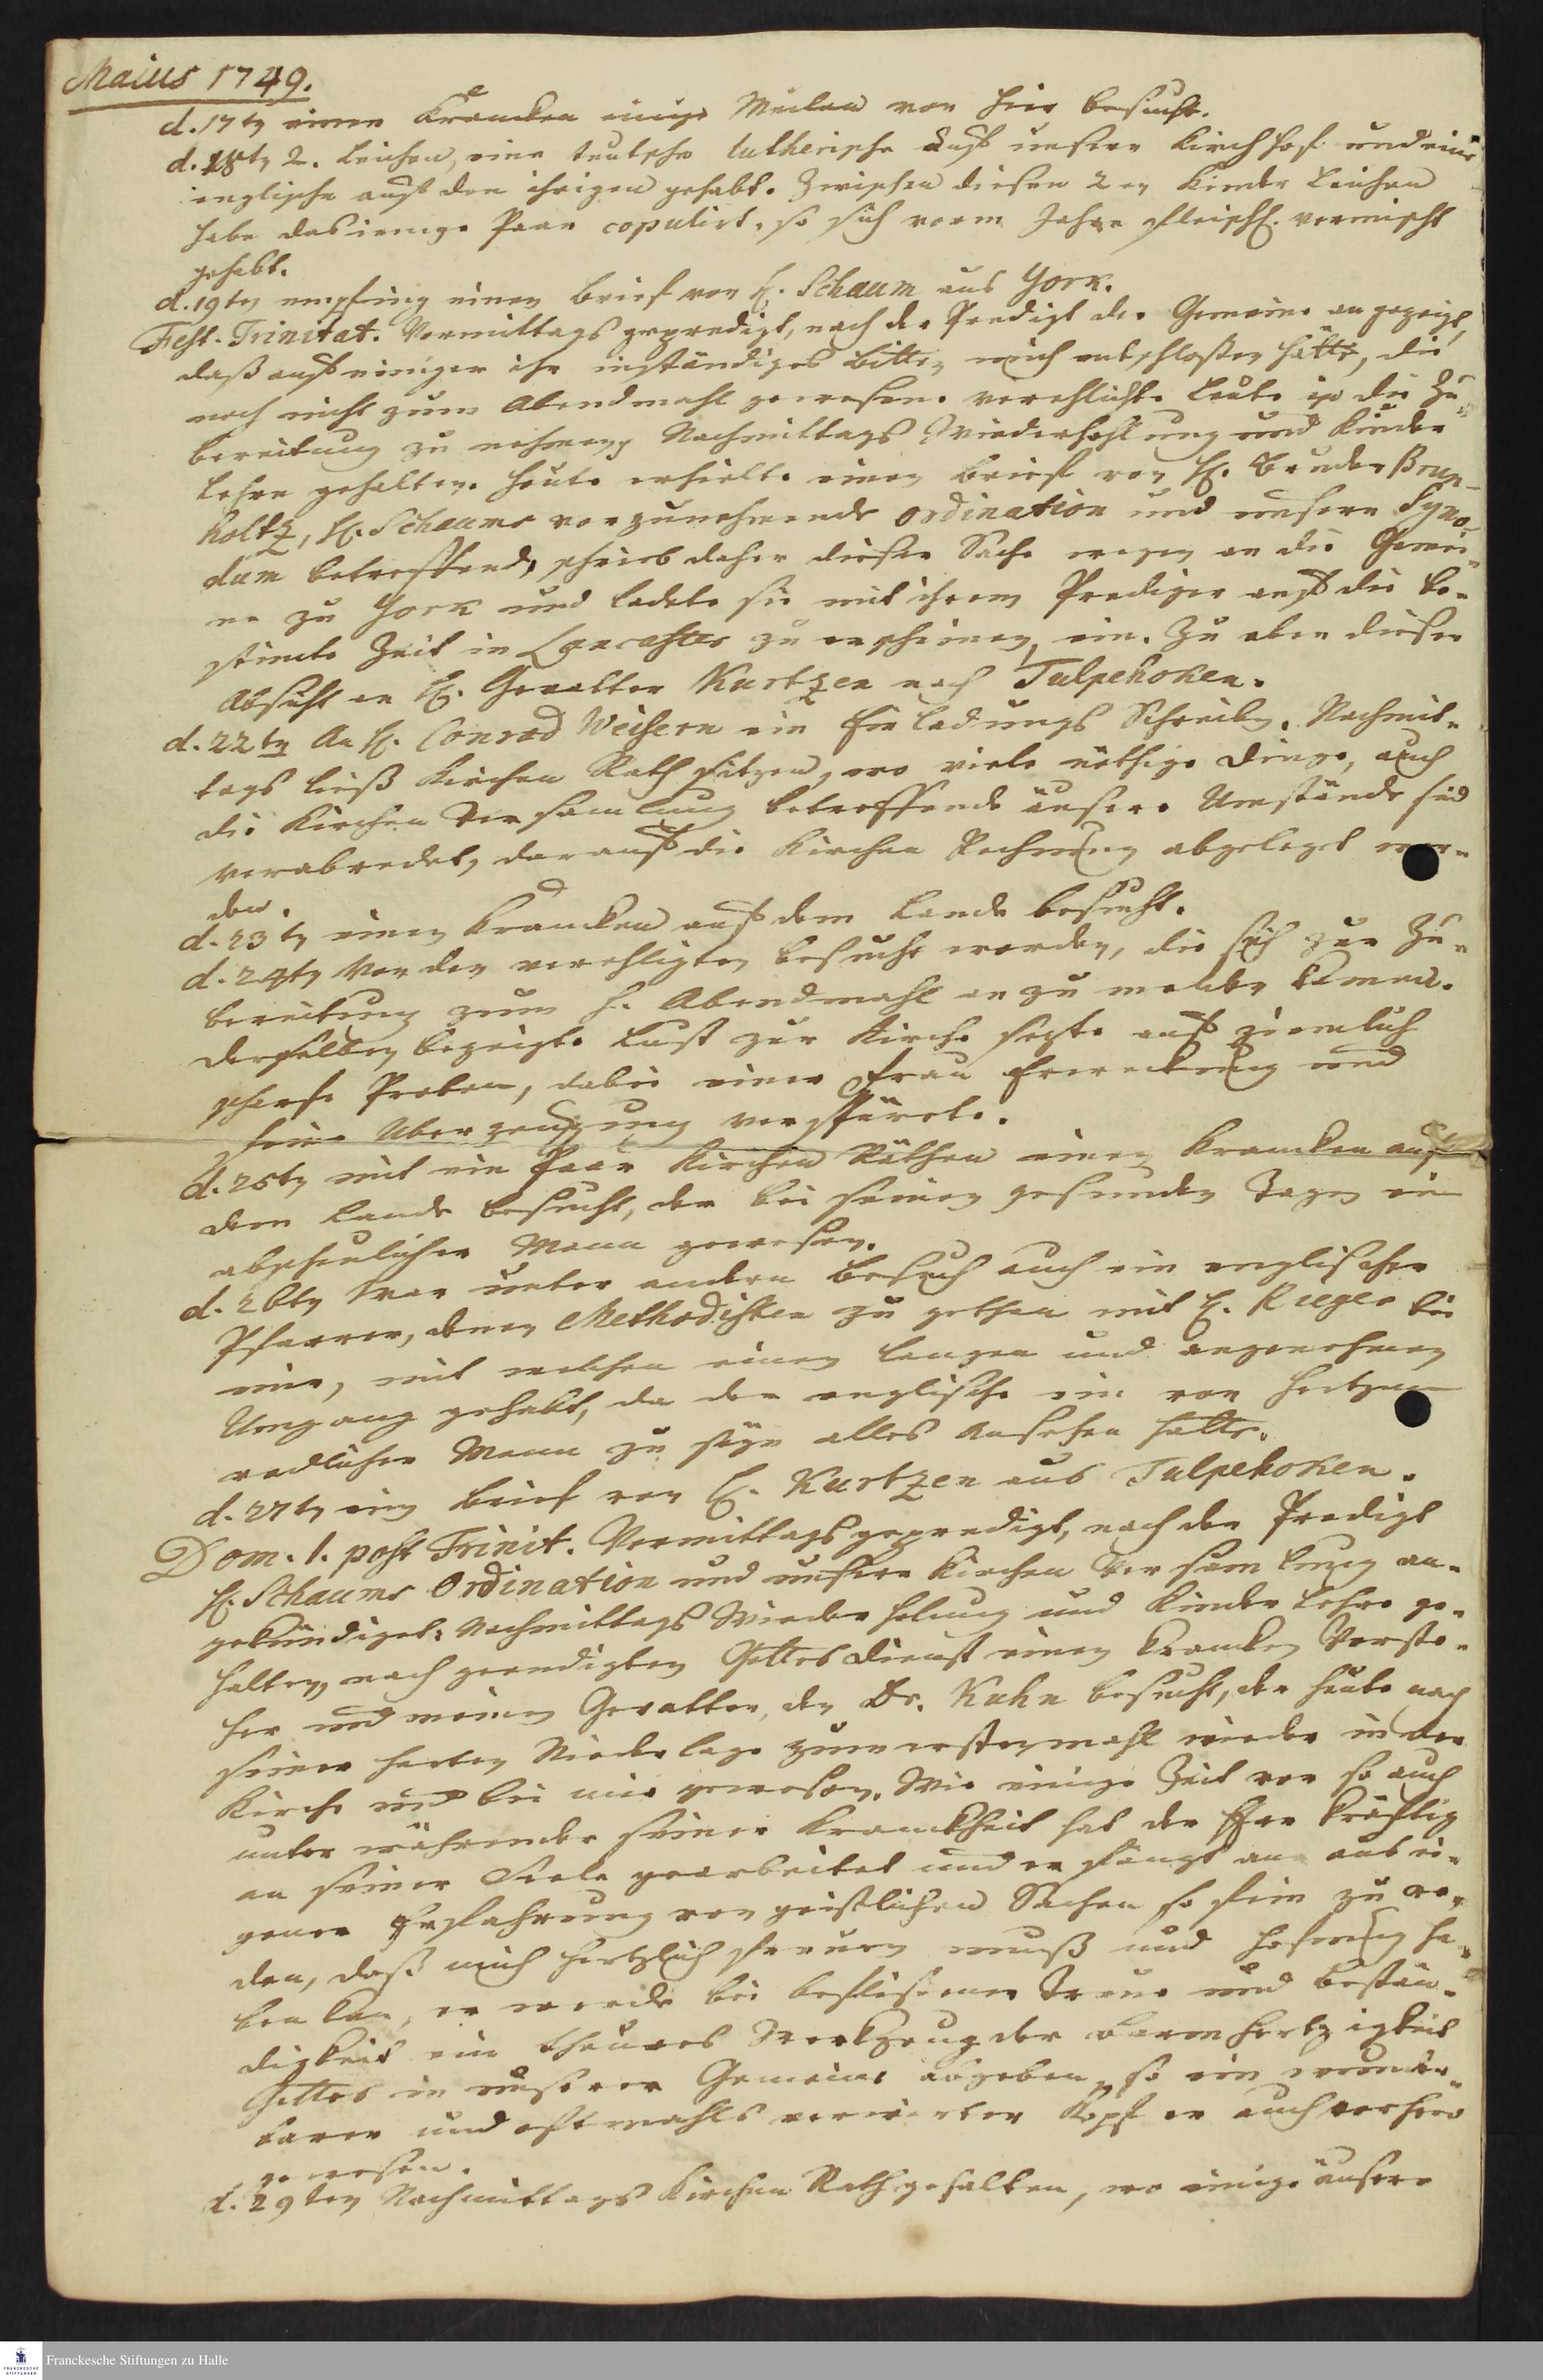 Maius 1749.
d. 17tn einen Krancken einige Meilen von hier besucht.
d. 18tn 2. Leichen, eine teutsche lutherische auf unsern Kirchhof und eine
englische auf den ihrigen gehabt. Zwischen diesen 2en Kinder Leichen
habe dasienige Paar copulirt, so sich vorm Jahre fleischl. vermischt
gehabt.
d. 19tn empfing einen Brief von H. Schaum aus York.
Fest. Trinitat. Vormittags gepredigt, nach der Predigt der Gemeine angezeigt,
daß auf einiger ihr inständiges Bitten mich entschloßen hätte, die
noch nicht zum Abendmahl gewesene verehlichte Leute in die Zu-
bereitung zu nehmen, Nachmittags Wiederhohlung und Kinder
Lehre gehalten. Heute erhielte einen Brief von H. Bruder Brun-
holtz, H. Schaums vorzunehmende Ordination und unsern Syno-
dum betreffend, schrieb daher dieser Sache wegen an die Gemei-
ne zu York und ladete sie mit ihrem Prediger auf die be-
stimte Zeit in Lancaster zu erscheinen, ein. Zu eben dieser
Absicht an H. Gevatter Kurtzen nach Tulpehoken.
d. 22tn An H. Conrad Weisern ein Einladungs Schreiben. Nachmit-
tags ließ Kirchen Rath sitzen, wo viele nöthige Dinge, auch
die Kirchen Versamlung betreffende äusere Umstände sind
verabredet, darauf die Kirchen Rechnung abgeleget wor-
den.
d. 23tn einen Krancken auf dem Lande besucht.
d. 24tn Von den verehligten besucht worden, die sich zur Zu-
bereitung zum h. Abendmahl an zu melden kamen.
Derselben bezeigte Lust zur Kirche sezte auf ziemlich
scharfe Proben, dabei einer Frau Erweckung und
feine Uberzeugung verspürete.
d. 25tn mit ein Paar Kirchen Räthen einen Krancken auf
dem Lande besucht, der bei seinen gesunden Tagen ein
abscheulicher Mann gewesen.
d. 26tn War unter andern Besuch auch ein englischer
Pfarrer, denen Methodisten zu gethan mit H. Rieger bei
mir, mit welchen einen langen und angenehmen
Umgang gehabt, da der englische ein von Hertzen
redlicher Mann zu seyn alles Ansehen hatte.
d. 27tn ein Brief von H. Kurtzen aus Tulpehoken.
Dom. 1. post Trinit. Vormittags gepredigt, nach der Predigt
H. Schaums Ordination und unsere Kirchen Versamlung an-
gekündiget. Nachmittags Wiederholung und Kinder Lehre ge-
halten, nach geendigten Gottes Dienst einen krancken Vorste-
her und meinen Gevatter, den Dr. Kuhn besucht, der heute nach
seiner harten Niederlage zum erstenmahl wieder in der
Kirche und bei mir gewesen. Wie einige Zeit vor so auch
unter währender seiner Kranckheit hat der Herr kräftig
an seiner Seele gearbeitet und er fängt an aus ei-
gener Erfahrung von geistlichen Sachen so fein zu re-
den, daß mich hertzlich freuen muß und Hofnung ha-
ben kan, er werde bei beflißener Treue und Bestän-
digkeit ein theures Werkzeug der Barmhertzigkeit
Gottes in unserer Gemeine abgeben, so ein wunder-
barer und oftmahls verwirrter Kopf er auch vorhero
gewesen.
d. 29ten Nachmittags Kirchen Rath gehalten, wo einige äusere
Franckesche Stiftungen zu Halle